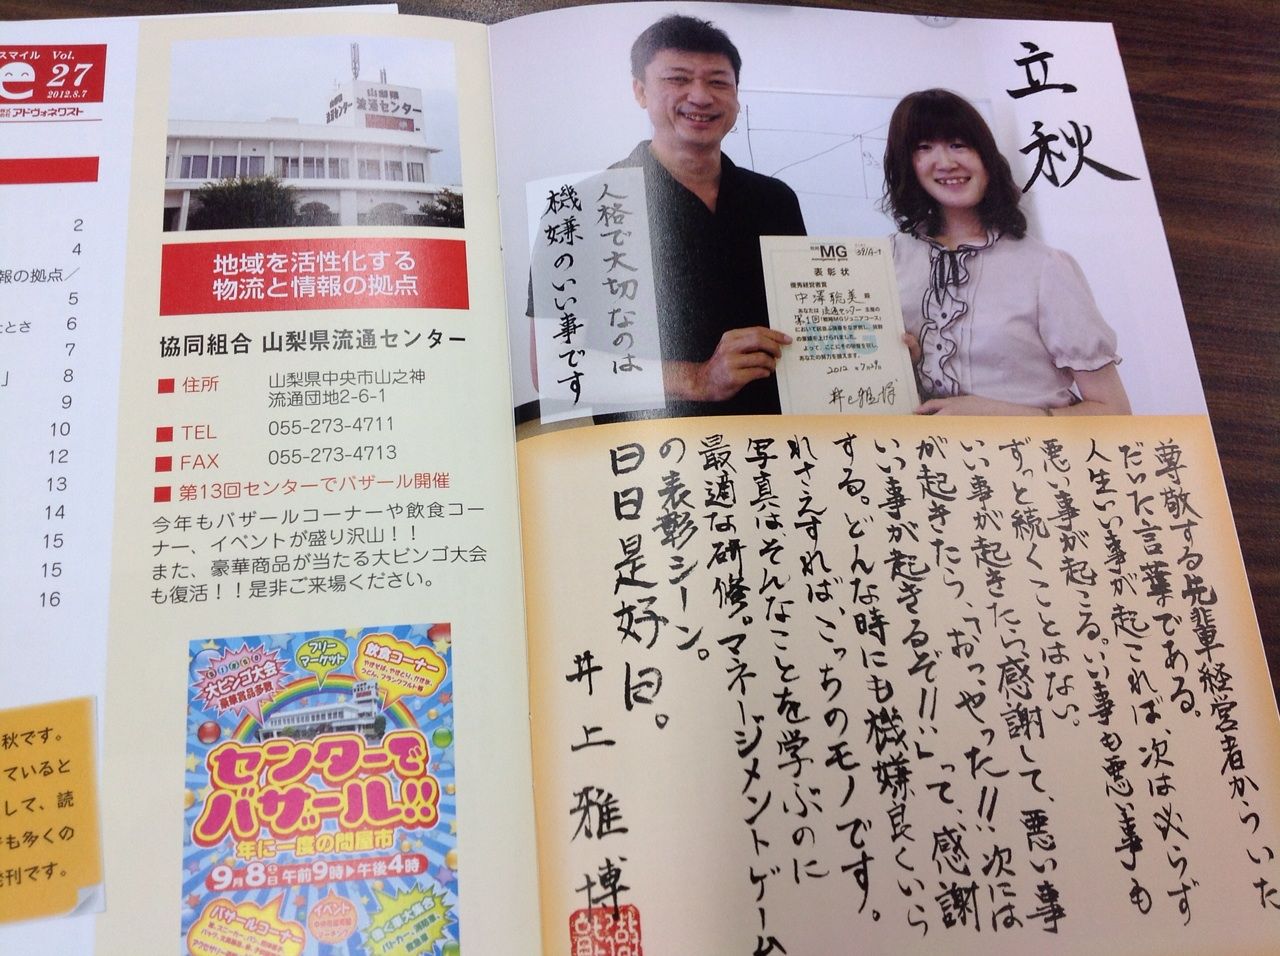 スマイル
Vol.
27
2012.8.7
アドヴォネクスト
2
4
報の拠点／
5
6
7
8
9
10
12
13
14
15
15
16
秋です。
ていると
して、読
も多くの
発刊です。
山梨県
流通センター
地域を活性化する
物流と情報の拠点
協同組合 山梨県流通センター
■ 住所 山梨県中央市山之神
流通団地2-6-1
■ TEL 055-273-4711
■ FAX 055-273-4713
■ 第13回センターでバザール開催
今年もバザールコーナーや飲食コー
ナー、イベントが盛り沢山！！
また、豪華商品が当たる大ビンゴ大会
も復活！！是非ご来場ください。
大ビンゴ大会
豪華賞品多数
フリー
マーケット
飲食コーナー
センターで
バザール!!
年に一度の問屋市
9月8日 午前9時▶午後4時
バザールコーナー
イベント
働く車大集合
立秋
人格で大切なのは
機嫌のいい事です
MG
表彰状
優秀経営者賞
中澤聡美 殿
あなたは 流通センター 主催の
第1回「戦略MGジュニアコース」
において
の業績を上げられました。
よって、ここにその栄誉を祝し、
あなたの努力を讃えます。
2012年7月29日
井上雅博
尊敬する先輩経営者からいた
だいた言葉である。
人生いい事が起これば、次は必らず
悪い事が起こる。いい事も悪い事も
ずっと続くことはない。
いい事が起きたら、感謝して、悪い事
が起きたら、「おっ、やった!!次には
いい事が起きるぞ!!」って、感謝
する。どんな時にも機嫌良くいら
れさえすれば、こっちのモノです。
写真は、そんなことを学ぶのに
最適な研修。マネージメントゲーム
の表彰シーン。
日日是好日。
井上雅博